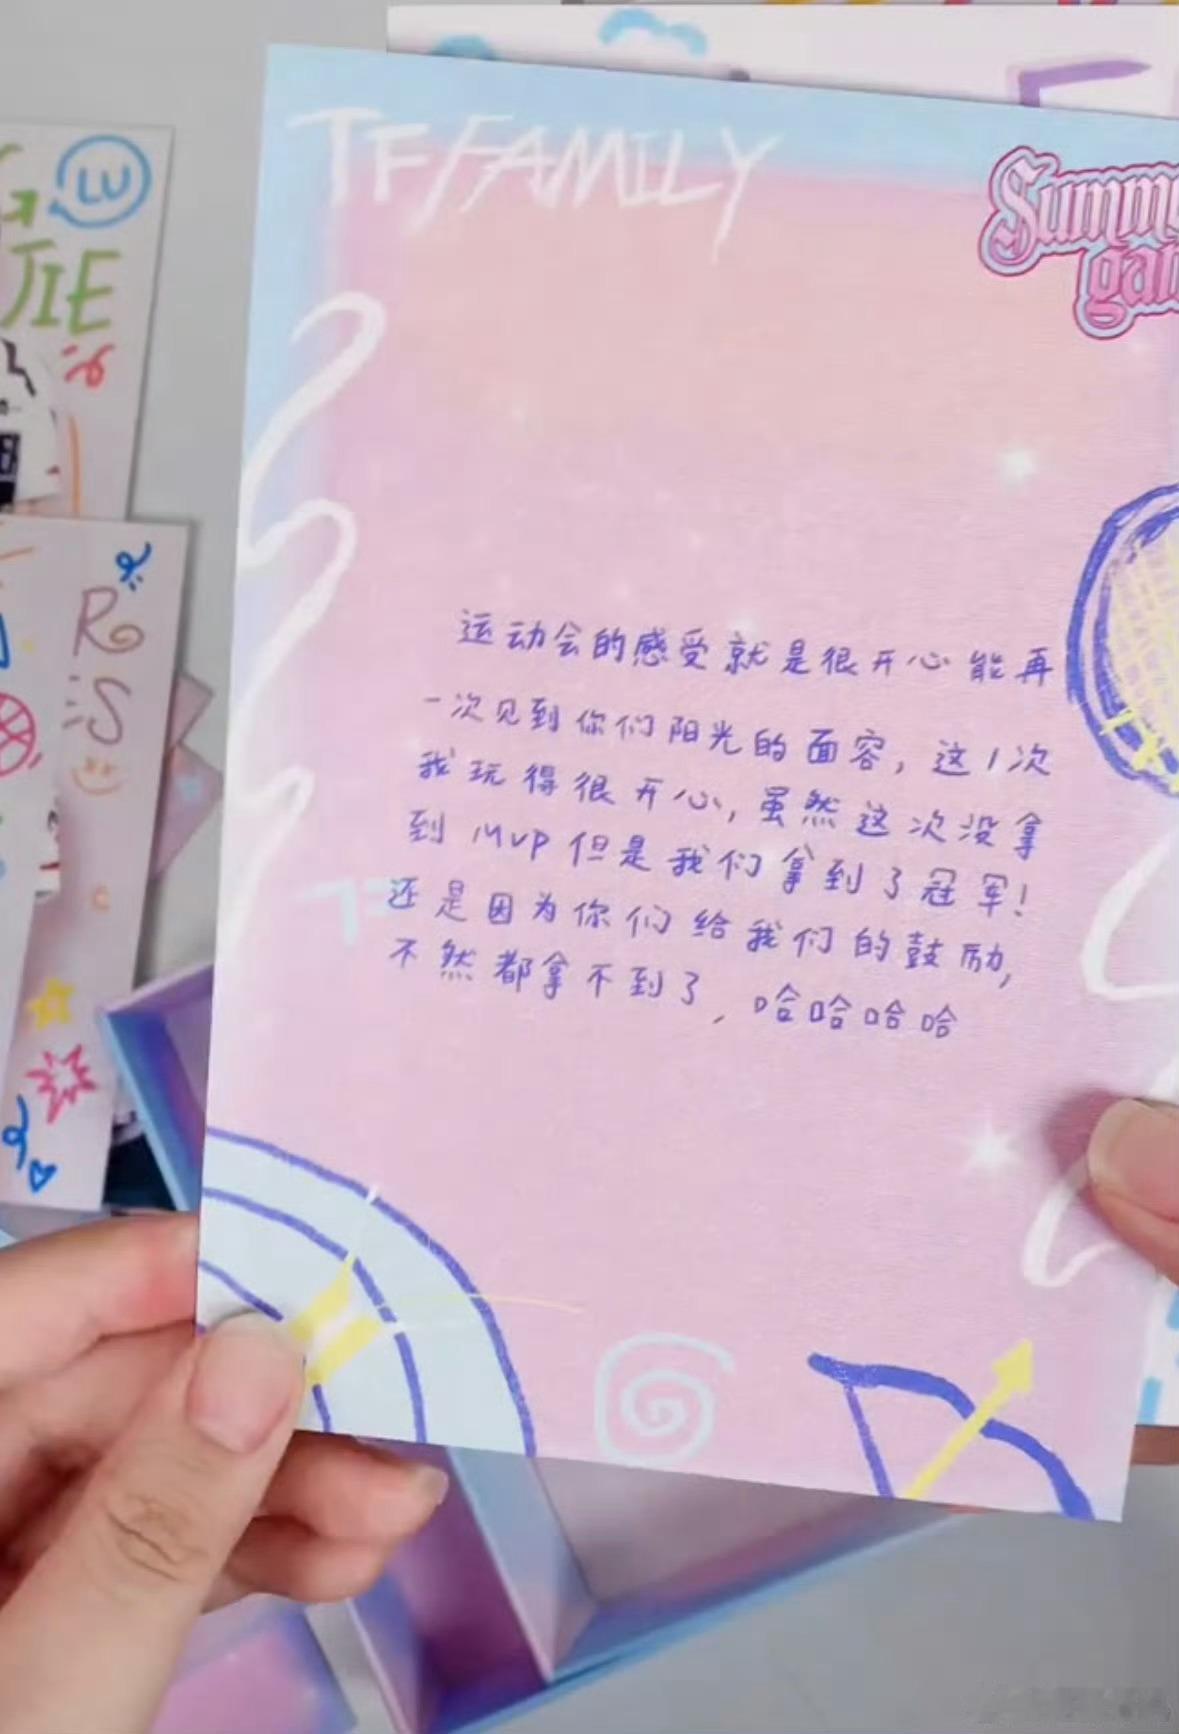 TF/FAMILY
LU
JIE
R
S
运动会的感受就是很开心能再
一次见到你们阳光的面容，这1次
我玩得很开心，虽然这次没拿
到MVP但是我们拿到了冠军！
还是因为你们给我们的鼓励，
不然都拿不到了，哈哈哈哈